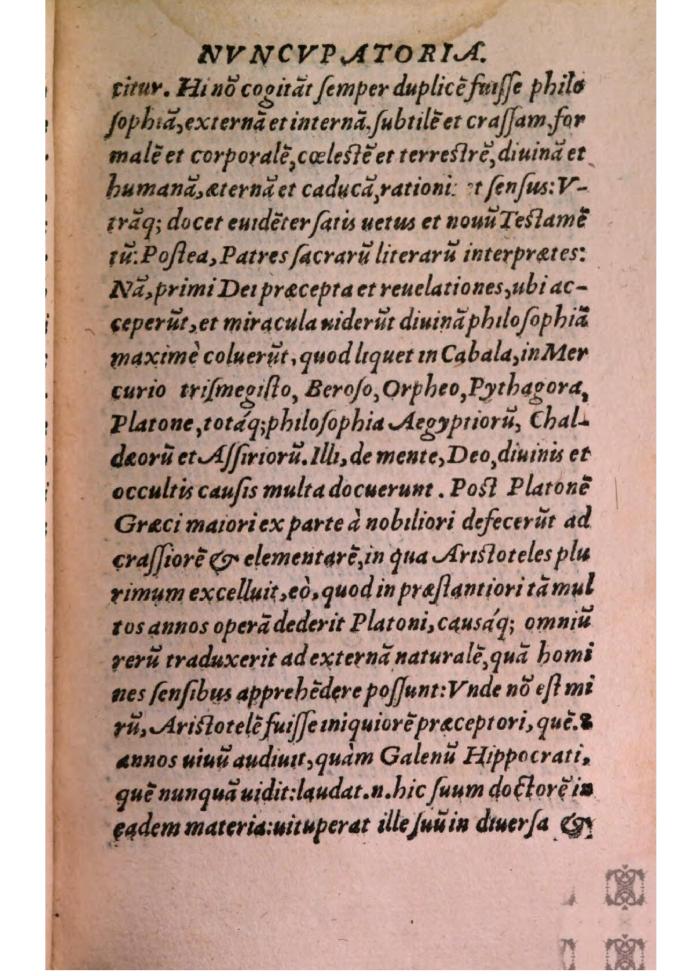 NVNCVPATORIA.
titur. Hi nō cogitāt semper duplicē fuisse philo
sophiā, externā et internā, subtilē et crassam, for
malē et corporalē, cœlestē et terrestrē, diuinā et
humanā, æternā et caducā, rationi: et sensus: V-
trāq; docet euidēter satis uetus et nouū Testamē
tū: Postea, Patres sacrarū literarū interprætes:
Nā, primi Dei præcepta et reuelationes, ubi ac-
ceperūt, et miracula uiderūt diuinā philosophiā
maximè coluerūt, quod liquet in Cabala, in Mer
curio trismegisto, Beroso, Orpheo, Pythagora,
Platone, totáq; philosophia Aegyptiorū, Chal-
dæorū et Assiriorū. Illi, de mente, Deo, diuinis et
occultis causis multa docuerunt. Post Platonē
Græci maiori ex parte à nobiliori defecerūt ad
crassiorē & elementarē, in qua Aristoteles plu
rimum excelluit, eò, quod in præstantiori tā mul
tos annos operā dederit Platoni, causáq; omniū
rerū traduxerit ad externā naturalē, quā homi
nes sensibus apprehēdere possunt: Vnde nō est mi
rū, Aristotelē fuisse iniquiorē præceptori, quē.8
annos uiuū audiuit, quàm Galenū Hippocrati,
quē nunquā uidit: laudat.n. hic suum doctorē in
eadem materia: uituperat ille suū in diuersa &